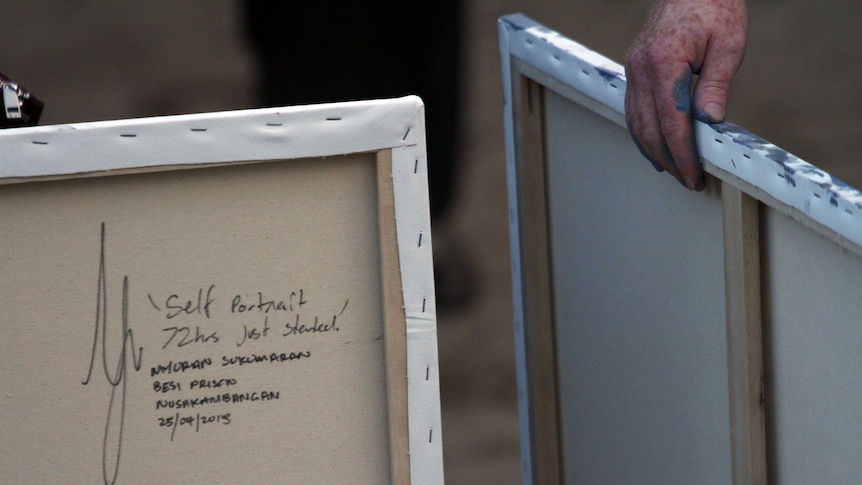 'Self Portrait
72hrs just started!'
MYURAN SUKUMARAN
BESI PRISON
NUSAKAMBANGAN
25/04/2015